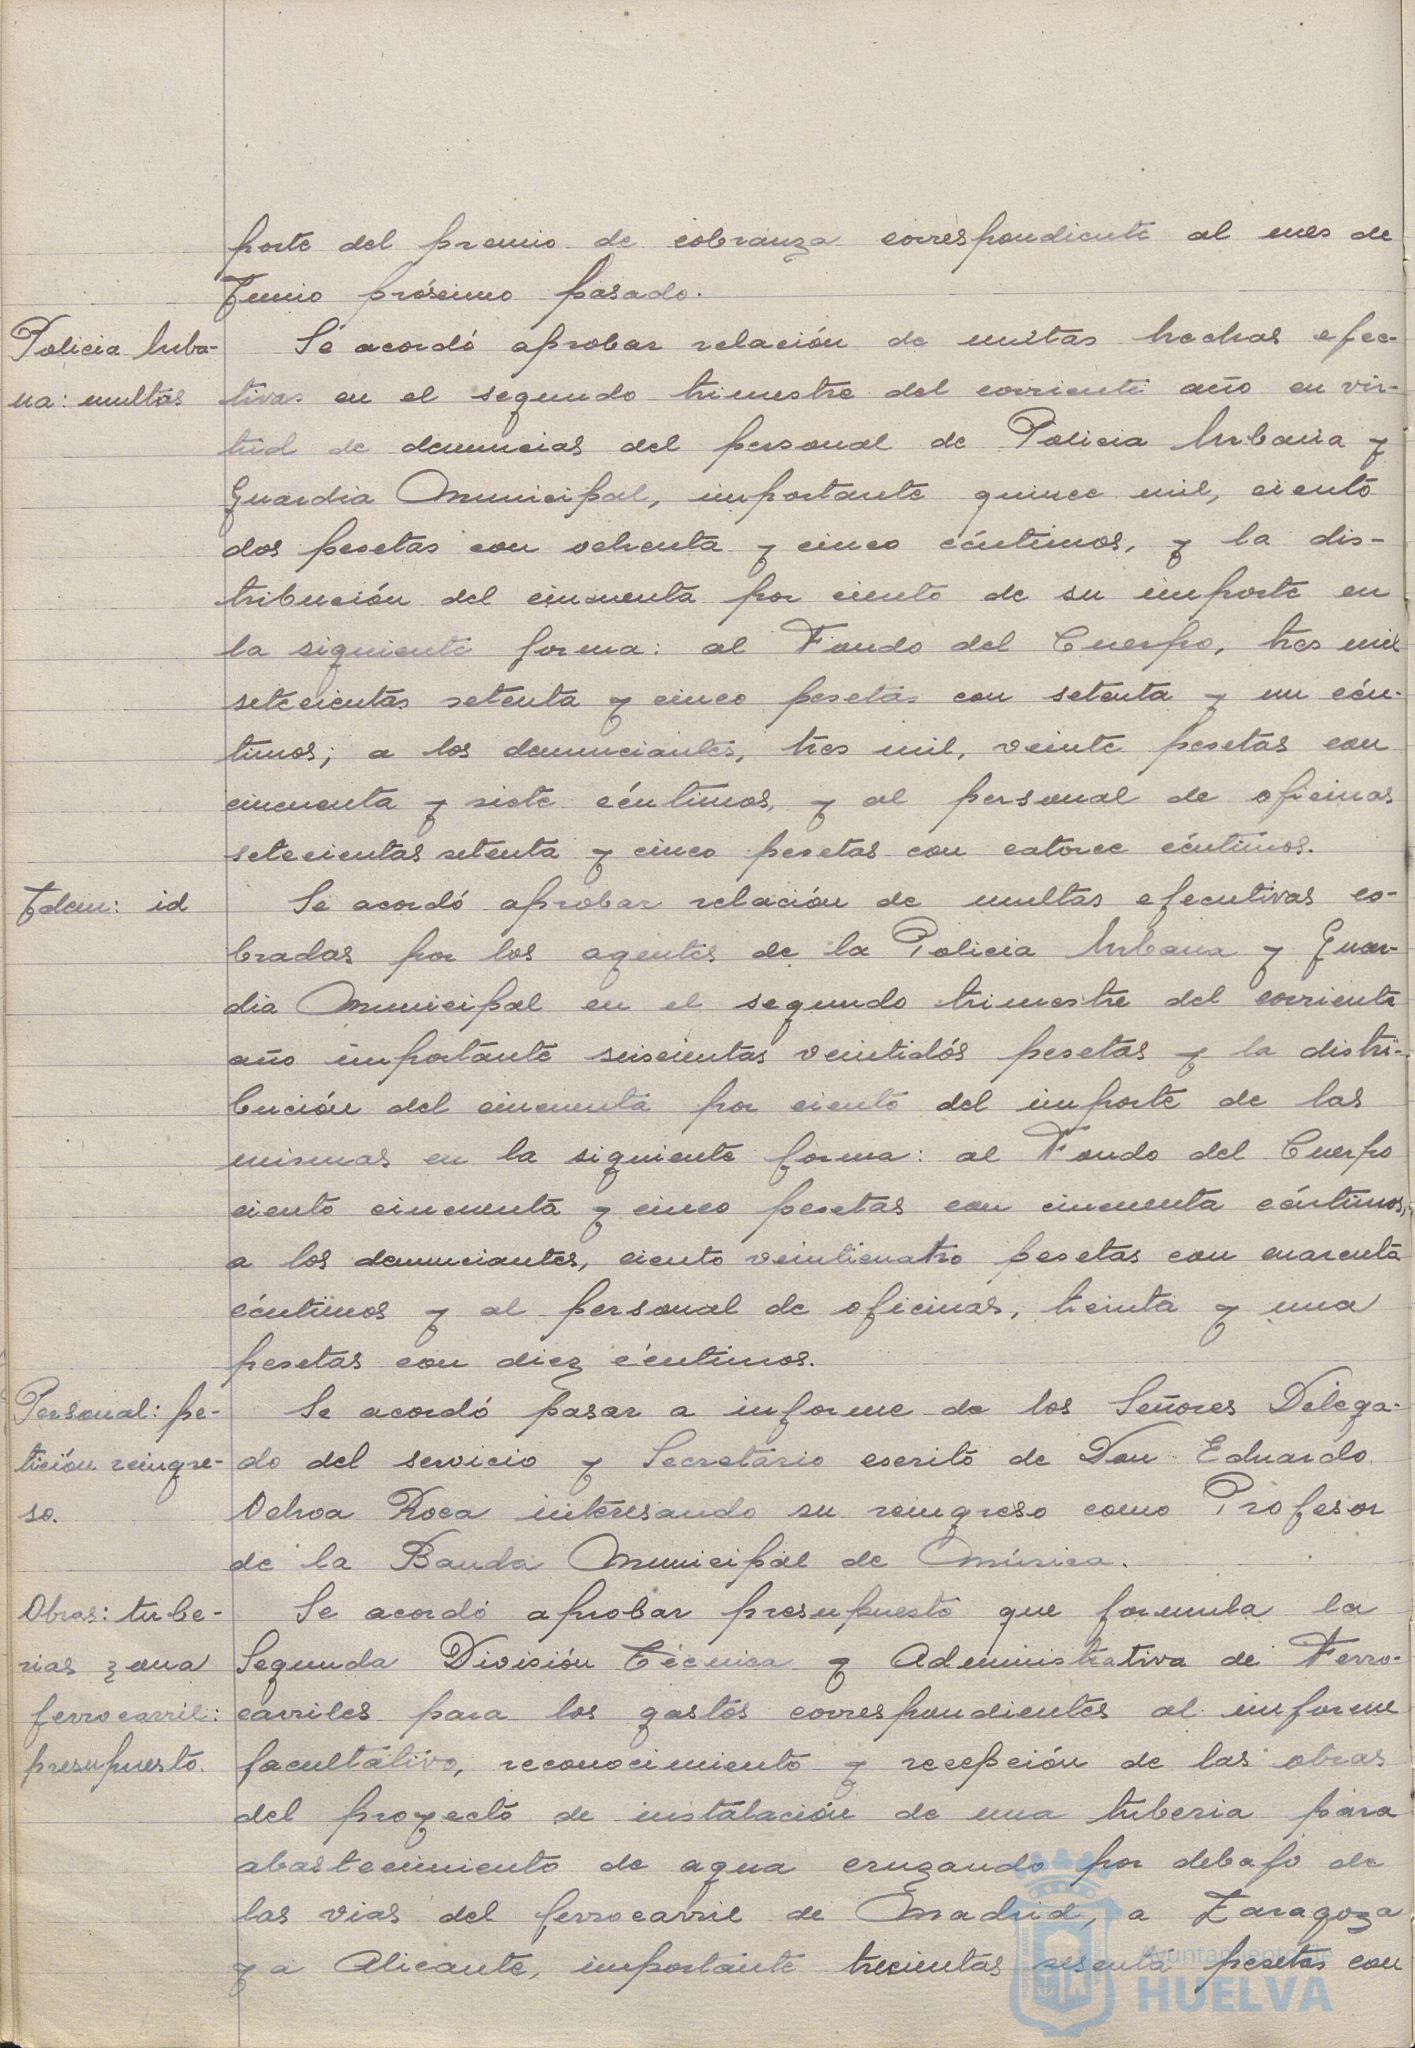 porte del premio de cobranza correspondiente al mes de
Junio próximo pasado.
Policia Urba-
na: multas
Se acordó aprobar relación de multas hechas efec-
tivas en el segundo trimestre del corriente año en vir-
tud de denuncias del personal de Policia Urbana y
Guardia Municipal, importante quince mil, ciento
dos pesetas con ochenta y cinco céntimos, y la dis-
tribución del cincuenta por ciento de su importe en
la siguiente forma: al Fondo del Cuerpo, tres mil
setecientas setenta y cinco pesetas con setenta y un cén-
timos; a los denunciantes, tres mil, veinte pesetas con
cincuenta y siete céntimos, y al personal de oficinas
setecientas setenta y cinco pesetas con catorce céntimos.
Idem: id
Se acordó aprobar relación de multas ejecutivas co-
bradas por los agentes de la Policia Urbana y Guar-
dia Municipal en el segundo trimestre del corriente
año importante seiscientas veintidós pesetas y la distri-
bución del cincuenta por ciento del importe de las
mismas en la siguiente forma: al Fondo del Cuerpo
ciento cincuenta y cinco pesetas con cincuenta céntimos,
a los denunciantes, ciento veinticuatro pesetas con cuarenta
céntimos y al personal de oficinas, treinta y una
pesetas con diez céntimos.
Personal: pe-
tición reingre-
so.
Se acordó pasar a informe de los Señores Delega-
do del servicio y Secretario escrito de Don Eduardo
Ochoa Roca interesando su reingreso como Profesor
de la Banda Municipal de Música.
Obras: tube-
rias zona
ferrocarril:
presupuesto.
Se acordó aprobar presupuesto que formula la
Segunda División Técnica y Administrativa de Ferro-
carriles para los gastos correspondientes al informe
facultativo, reconocimiento y recepción de las obras
del proyecto de instalación de una tuberia para
abastecimiento de agua cruzando por debajo de
las vias del ferrocarril de Madrid, a Zaragoza
y a Alicante, importante trescientas sesenta pesetas con
Ayuntamiento de
HUELVA